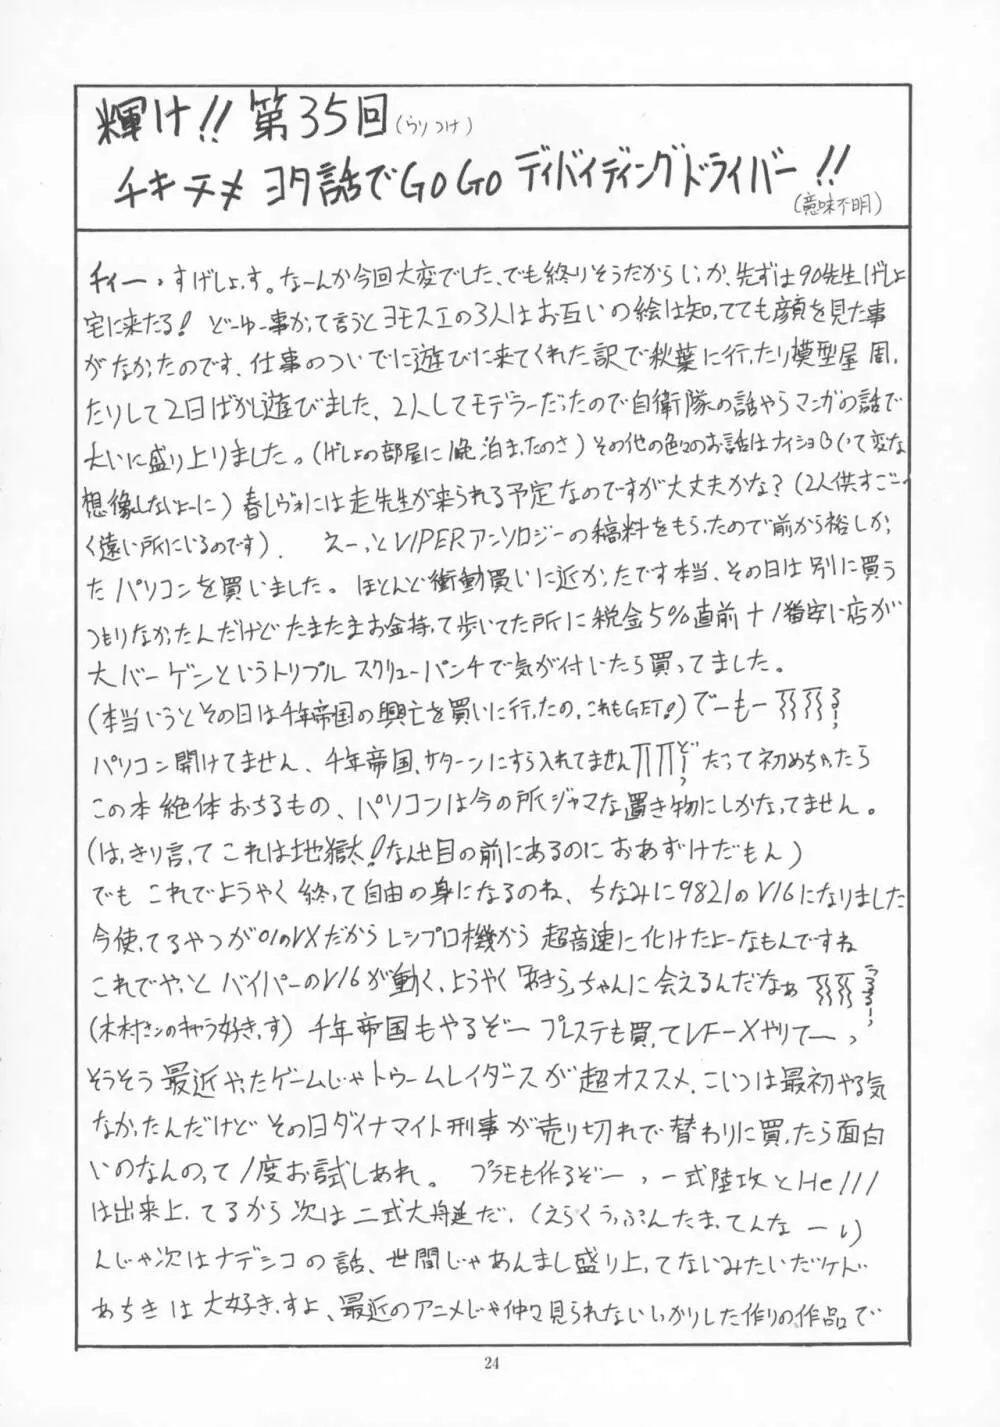 輝け!! 第35回(らりつけ)
チキチメ ヨタ話でGoGo ディバイディングドライバー!!
(意味不明)
チィーっすげしょっす。なーんか今回大変でした、でも終りそうだからしいか、先ずは90先生げしょ
宅に来たる! どーゆー事かって言うとヨモスエの3人はお互いの絵は知ってても顔を見た事
がなかったのです、仕事のついでに遊びに来てくれた訳で秋葉に行ったり模型屋周っ
たりして2日ばかし遊びました、2人してモデラーだったので自衛隊の話やらマンガの話で
大いに盛り上りました。(げしょの部屋に1晩泊まったのさ)その他の色々のお話はナイショ(って変な
想像しないよーに)春しヴォには走先生が来られる予定なのですが大丈夫かな?(2人供すごーっ
く遠い所にいるのです). えーっとVIPERアンソロジーの稿料をもらったので前から裕しかっ
たパソコンを買いました。ほとんど衝動買いに近かったです本当、その日は別に買う
つもりなかったんだけどたまたまお金持って歩いてた所に税金5%直前+1番安い店が
大バーゲンというトリプルスクリューパンチで気が付いたら買ってました。
(本当いうとその日は千年帝国の興亡を買いに行ったの,これもGET!)でーもー
パソコン開けてません、千年帝国、サターンにすら入れてません だって初めちゃったら
この本絶体おちるもの、パソコンは今の所ジャマな置き物にしかなってません。
(はっきり言ってこれは地獄だ!なんせ目の前にあるのにおあずけだもん)
でも これでようやく終って自由の身になるのね、ちなみに9821のV16になりました
今使ってるやつが01のVXだからレシプロ機から超音速に化けたよーなもんですね
これでやっとバイパーのV16が動く、ようやく「あきら」ちゃんに会えるんだなぁ
(木村さンのキャラ好きっす)千年帝国もやるぞー プレステも買ってVF-Xやりてーっ
そうそう最近やったゲームじゃトゥームレイダースが超オススメ、こいつは最初やる気
なかったんだけどその日ダイナマイト刑事が売り切れで替わりに買ったら面白
いのなんのって1度お試しあれ。 プラモも作るぞーっ 一式陸攻とHe111
は出来上ってるから次は二式大艇だ,(えらくうっぷんたまってんなーい)
んじゃ次はナデシコの話、世間じゃあんまし盛り上ってないみたいだケド
あちきは大好きっすよ、最近のアニメじゃ仲々見られないしっかりした作りの作品で
24